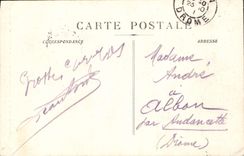 CARTE POSTALE
CORRESPONDANCE
ADRESSE
DROME
Grosses
Madame
André
à
Albon
par Andancette
(Drôme)